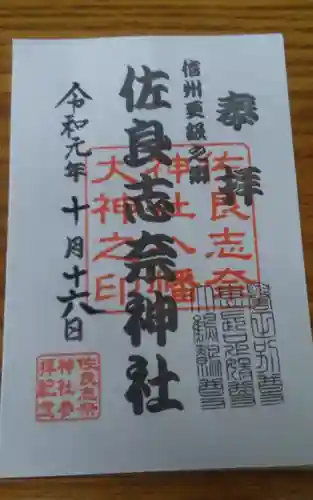 奉拝
信州更級之郷
佐良志奈神社
令和元年十月十六日
佐良志奈
神社八幡
大神之印
佐良志奈
神社参
拝記念